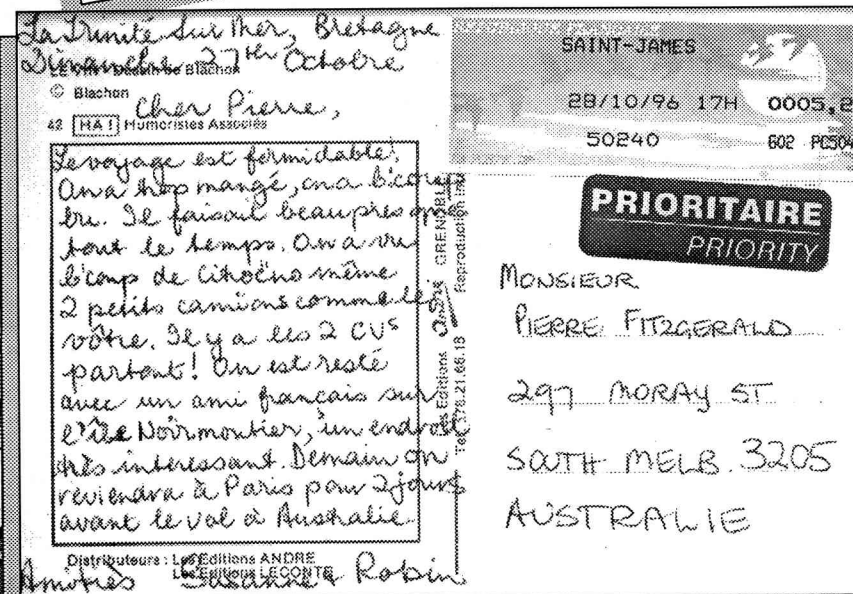 La Trinité Sur Mer, Bretagne
Dimanche 27th Octobre
LE VIN - Dessin de Blachon
© Blachon
Cher Pierre,
42 HA! Humoristes Associés
Le voyage est formidable!
On a trop mangé, on a b'coup
bu. Il faisait beau presque
tout le temps. On a vu
b'coup de Citroëns même
2 petits camions comme le
vôtre. Il y a les 2 CVs
partout! On est resté
avec un ami français sur
l'île Noirmoutier, un endroit
très interessant. Demain on
reviendra à Paris pour 2 jours
avant le vol à Australie.
Distributeurs : Les Editions ANDRE
Les Editions LECONTE
Amitiés Susanne & Robin
Editions
GRENOBLE
Reproduction int.
Tél. 76.21.66.18
SAINT-JAMES
28/10/96 17H 0005,2
50240 602 PC504
PRIORITAIRE
PRIORITY
MONSIEUR
PIERRE FITZGERALD
297 MORAY ST
SOUTH MELB. 3205
AUSTRALIE